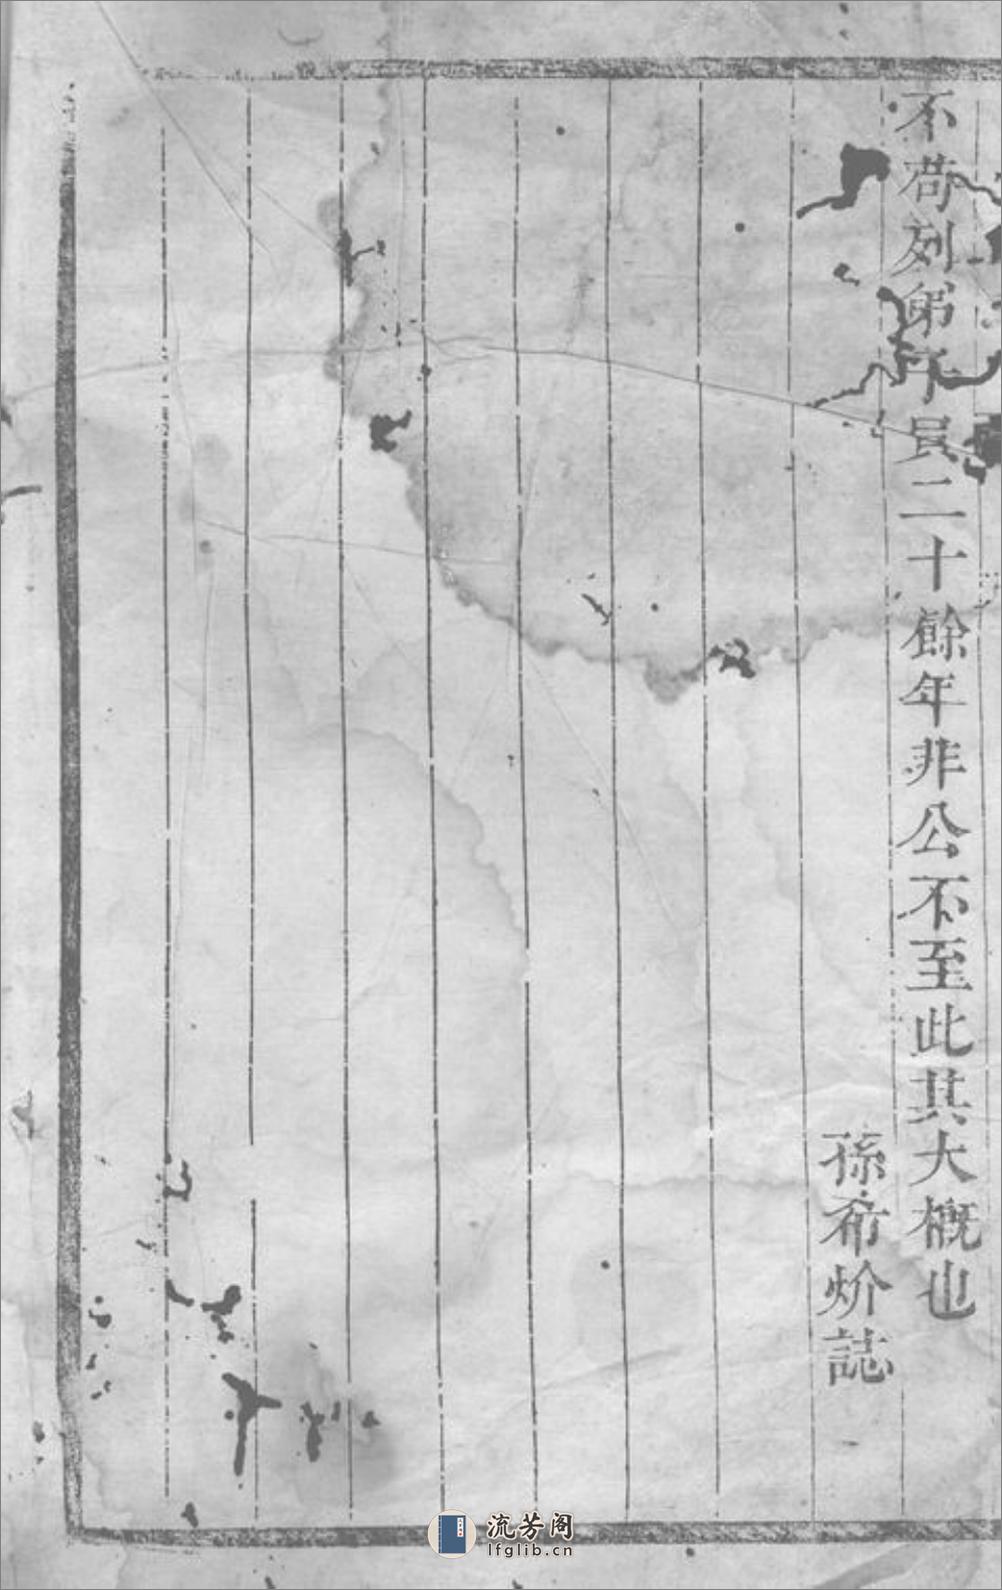 不苟刻弟子員二十餘年非公不至此其大概也
孫希炌誌
流芳阁
lfglib.cn